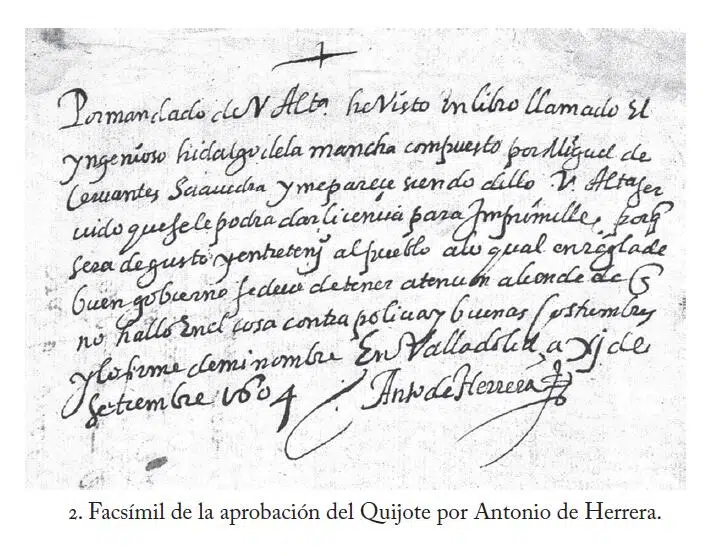 Por mandado de V Alta. he Visto Un libro llamado El
yngenioso hidalgo de la mancha compuesto por Miguel de
Cervantes Saauedra y me pareçe siendo dello V. Alta. ser
uido que se le podra dar licençia para Imprimille, porq̃
sera de gusto y entretenimj al pueblo a lo qual en regla de
buen gobierno se deue de tener atencion aliende de q̃
no hallo En el cosa contra policia y buenas Costumbres
y lo firme de mi nombre En Valladolid, a xj de
Setiembre 1604
Anto. de Herrera
2. Facsímil de la aprobación del Quijote por Antonio de Herrera.